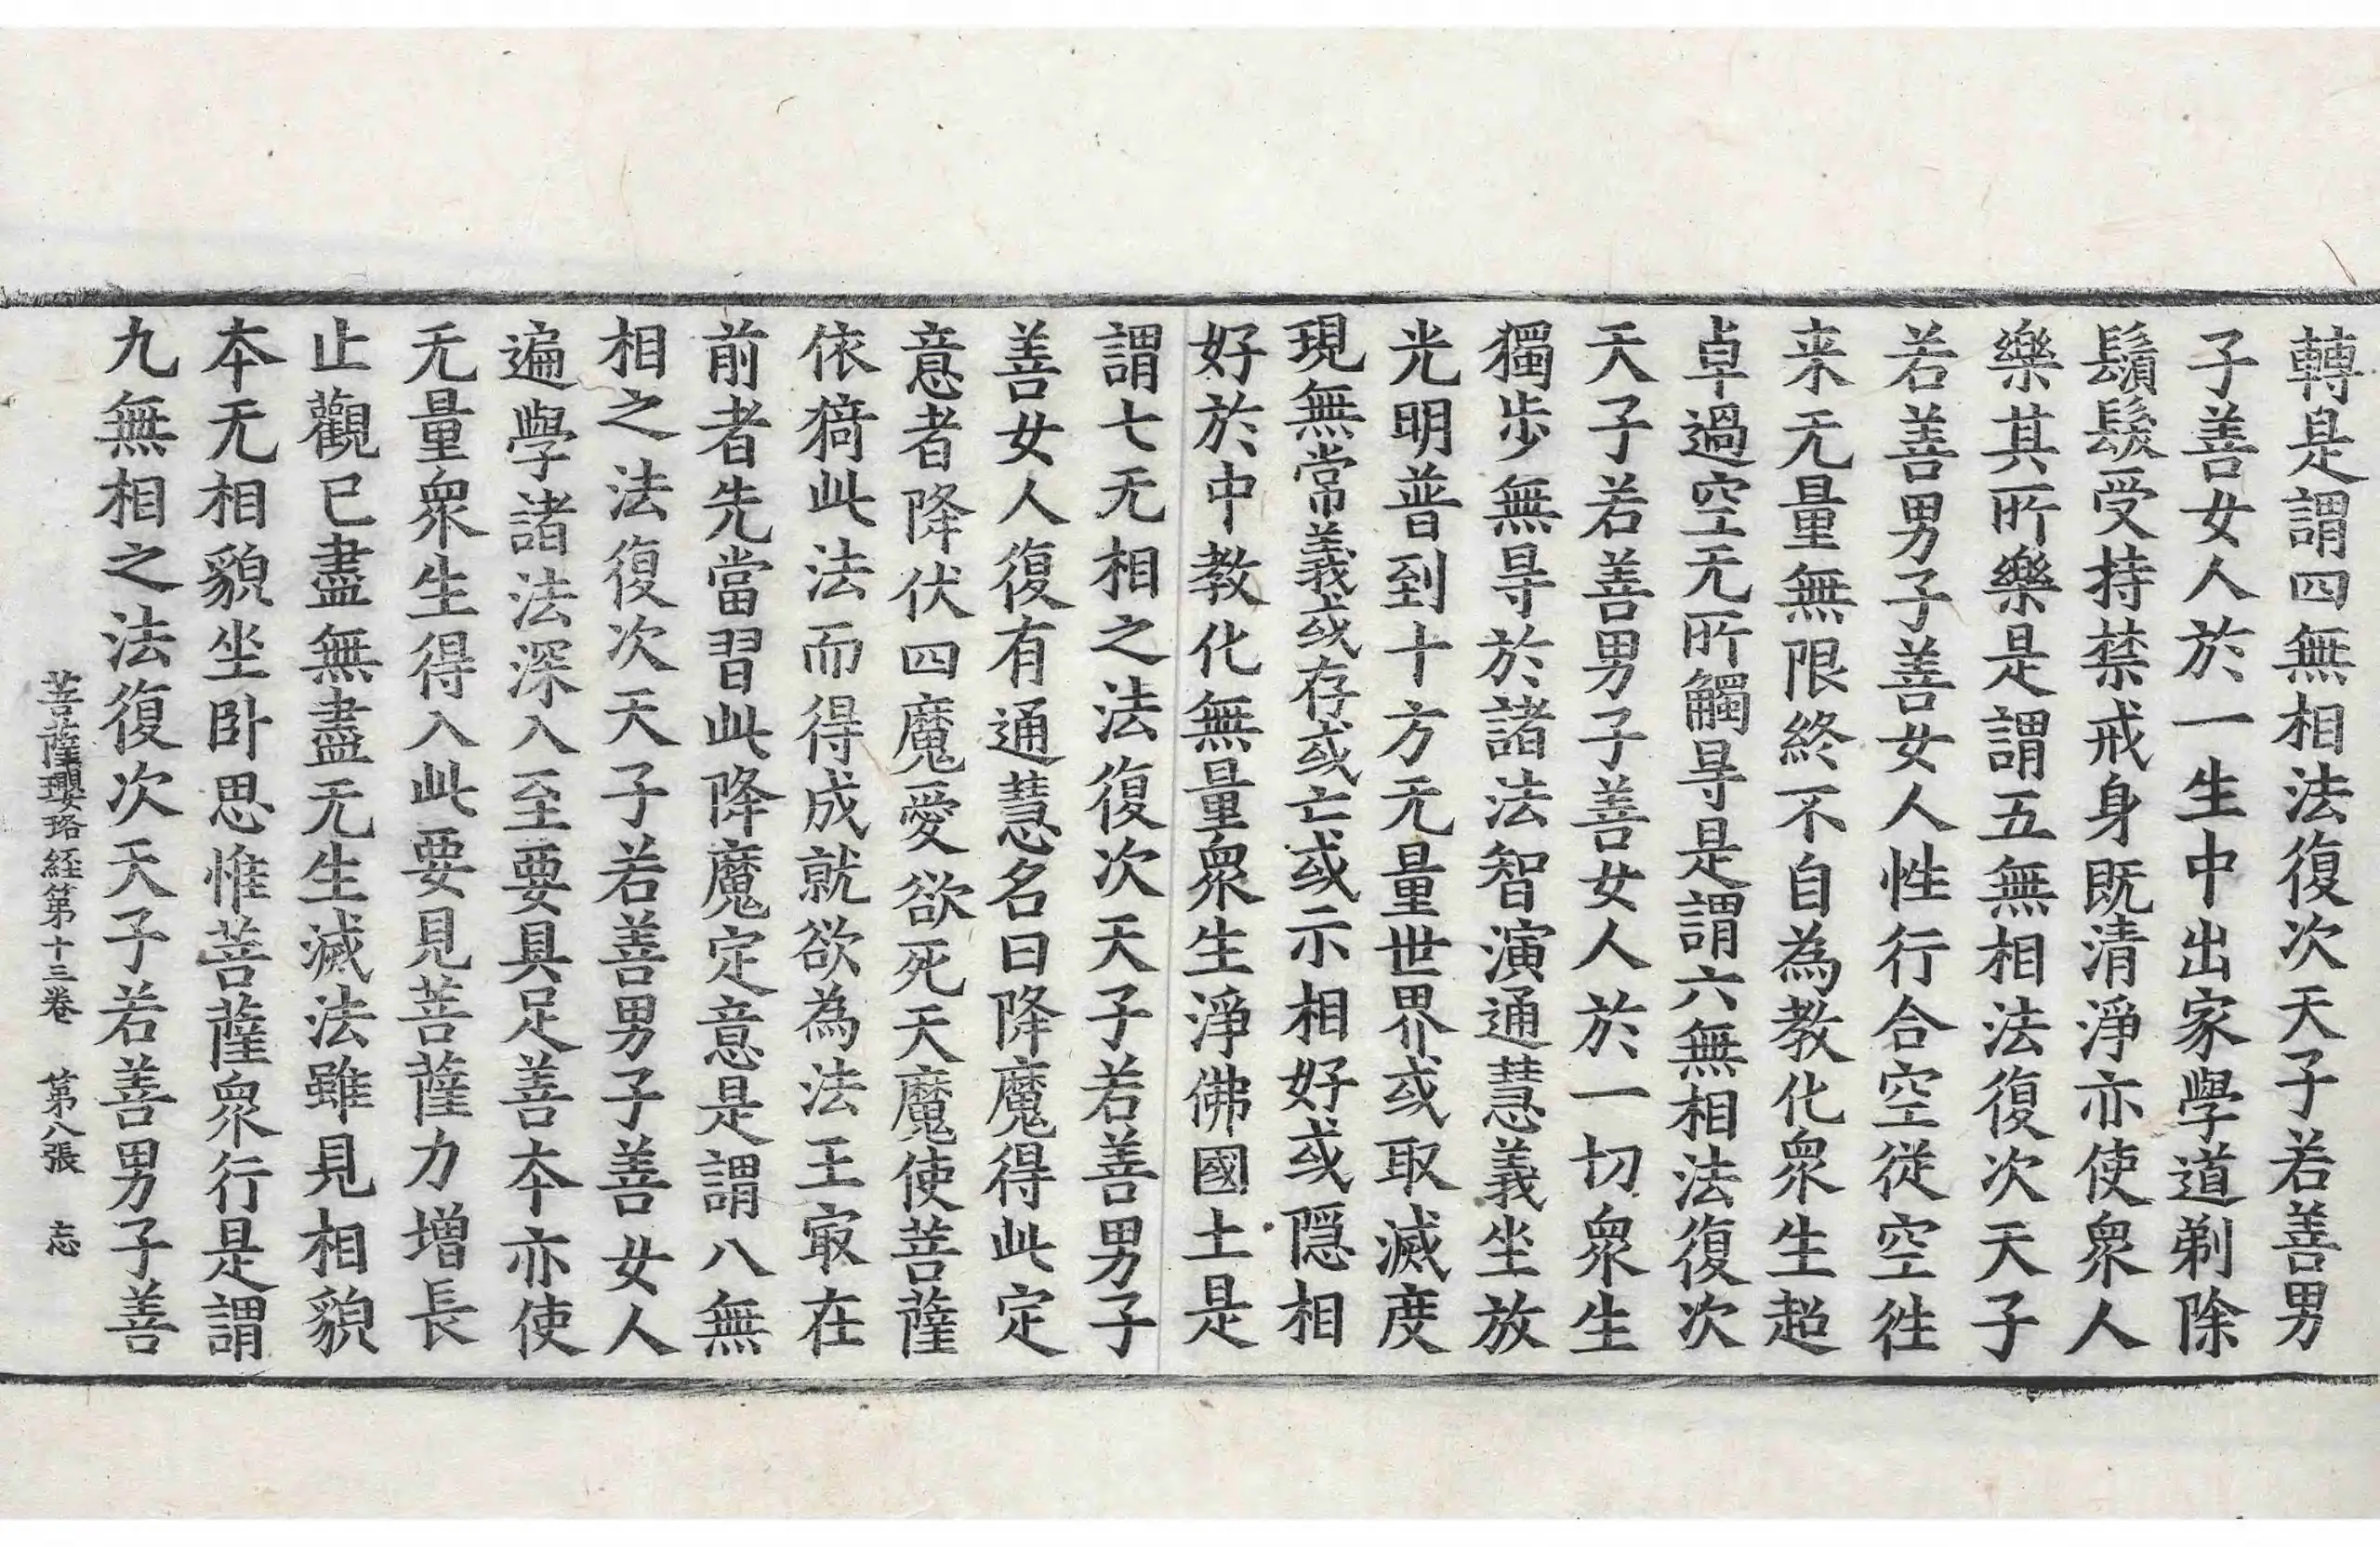 轉是謂四無相法復次天子若善男
子善女人於一生中出家學道剃除
鬚髮受持禁戒身既清淨亦使衆人
樂其所樂是謂五無相法復次天子
若善男子善女人性行合空從空往
来无量無限終不自為教化衆生超
卓過空无所觸㝵是謂六無相法復次
天子若善男子善女人於一切衆生
獨步無㝵於諸法智演通慧義坐放
光明普到十方无量世界或取滅度
現無常義或存或亡或示相好或隱相
好於中教化無量衆生淨佛國土是
謂七无相之法復次天子若善男子
善女人復有通慧名曰降魔得此定
意者降伏四魔愛欲死天魔使菩薩
依猗此法而得成就欲為法王冣在
前者先當習此降魔定意是謂八無
相之法復次天子若善男子善女人
遍學諸法深入至要具足善本亦使
无量衆生得入此要見菩薩力增長
止觀已盡無盡无生滅法雖見相貌
本无相貌坐卧思惟菩薩衆行是謂
九無相之法復次天子若善男子善
菩薩瓔珞経第十三卷 第八張 忘